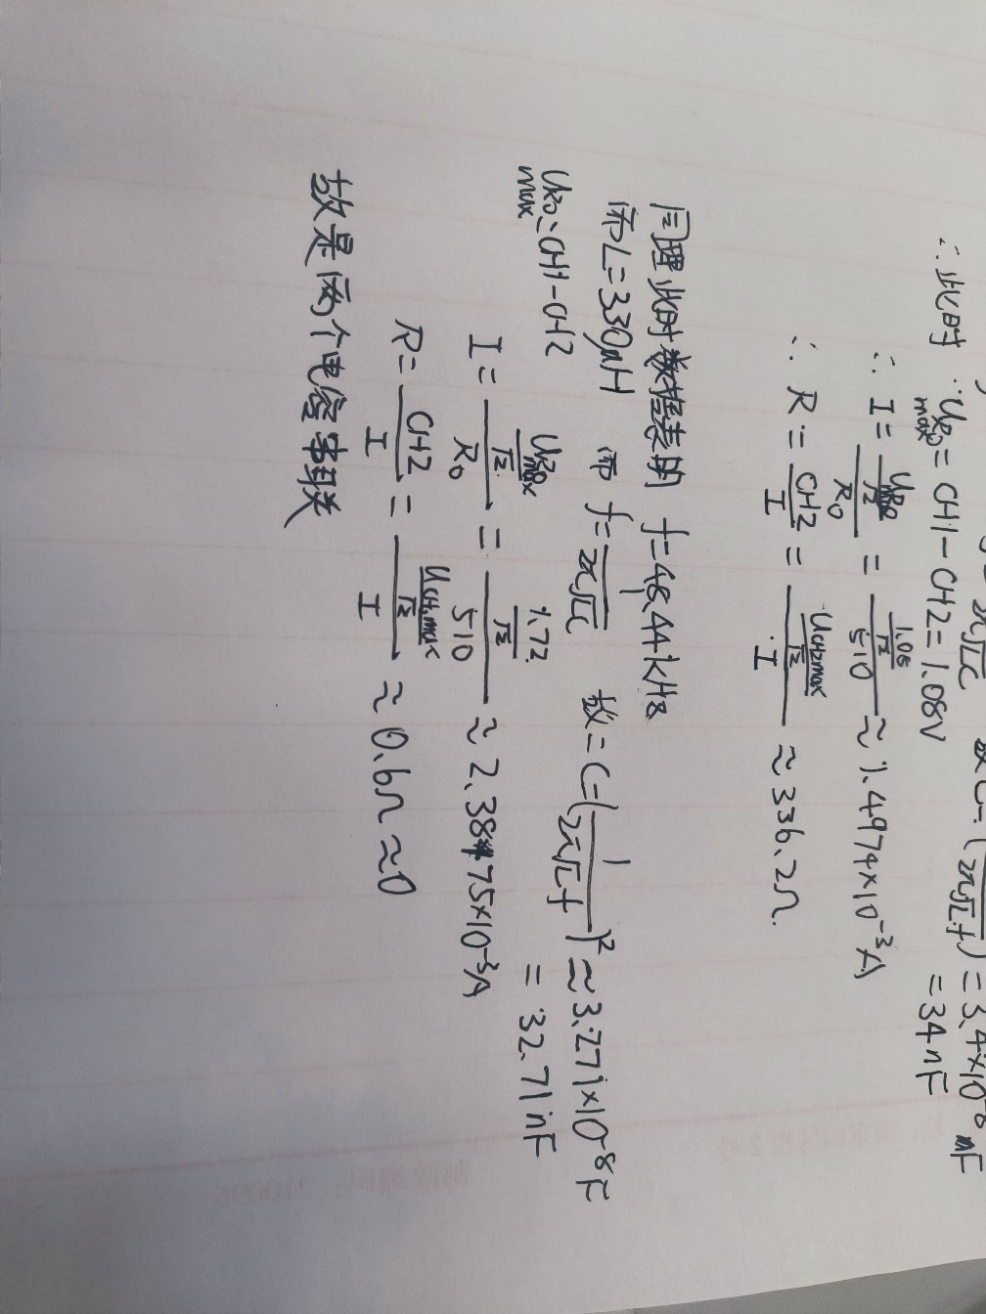 2π√LC 故C=(1/(2π√L f)) = 3.4×10⁻⁸ F
= 34nF
∴此时 U_R₀max = CH1-CH2 = 1.08V
∴ I = (U_R₀/√2)/R₀ = (1.08/√2)/510 ≈ 1.4974×10⁻³A
∴ R = CH2/I = (U_CH2max/√2)/I ≈ 336.2Ω.
同理此时数据表明 f=48.44kHz
而L=330μH 而 f=1/(2π√LC) 故=C=(1/(2π√L f))² ≈ 3.271×10⁻⁸F
= 32.71nF
U_R₀max = CH1-CH2
I = (U_R₀max/√2)/R₀ = (1.72/√2)/510 ≈ 2.38475×10⁻³A
R = CH2/I = (U_CH2max/√2)/I ≈ 0.6Ω ≈ 0
故是两个电容串联